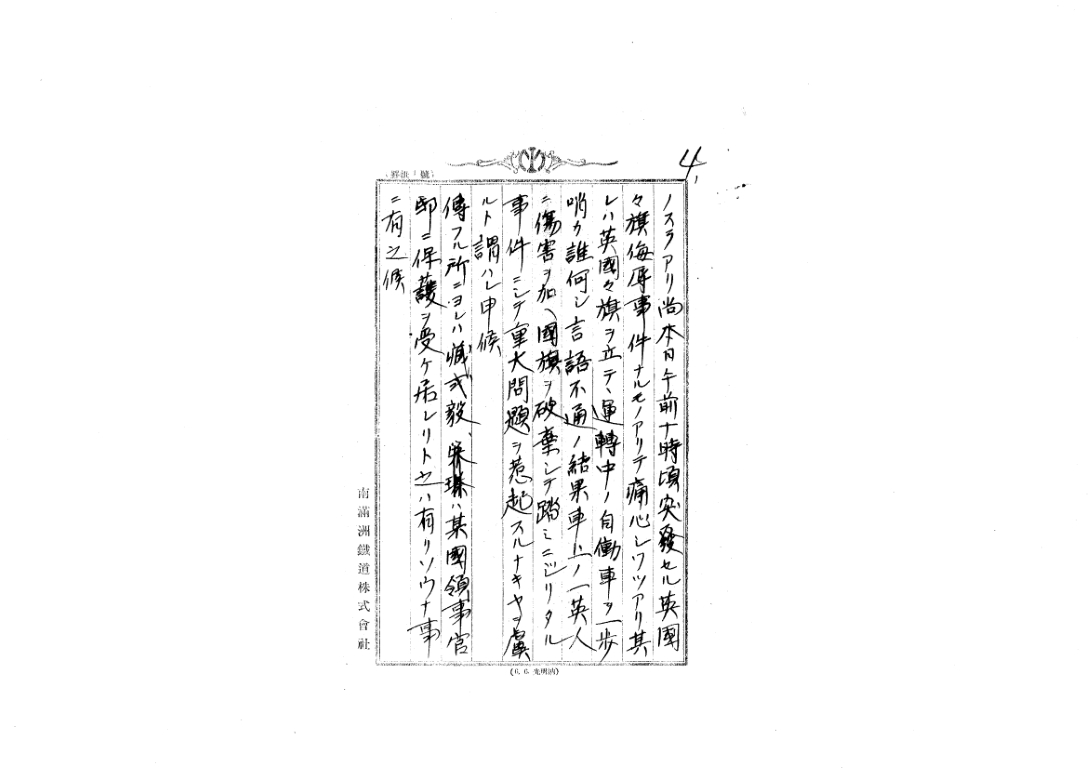 4.
ノスラアリ尚本日午前十時頃突發セル英國
々旗侮辱事件ナルモノアリテ痛心シツツアリ其
レハ英國々旗ヲ立テ、運轉中ノ自働車ヲ一歩
哨カ誰何シ言語不通ノ結果車上ノ一英人
ニ傷害ヲ加ヘ國旗ヲ破棄シテ踏ミニジリタル
事件ニシテ重大問題ヲ惹起スルナキヤヲ虞
ルト謂ハレ申候
傳フル所ニヨレハ臧式毅、榮臻ハ某國領事官
邸ニ保護ヲ受ケ居レリト之ハ有リソウナ事
ニ有之候
南滿洲鐵道株式會社